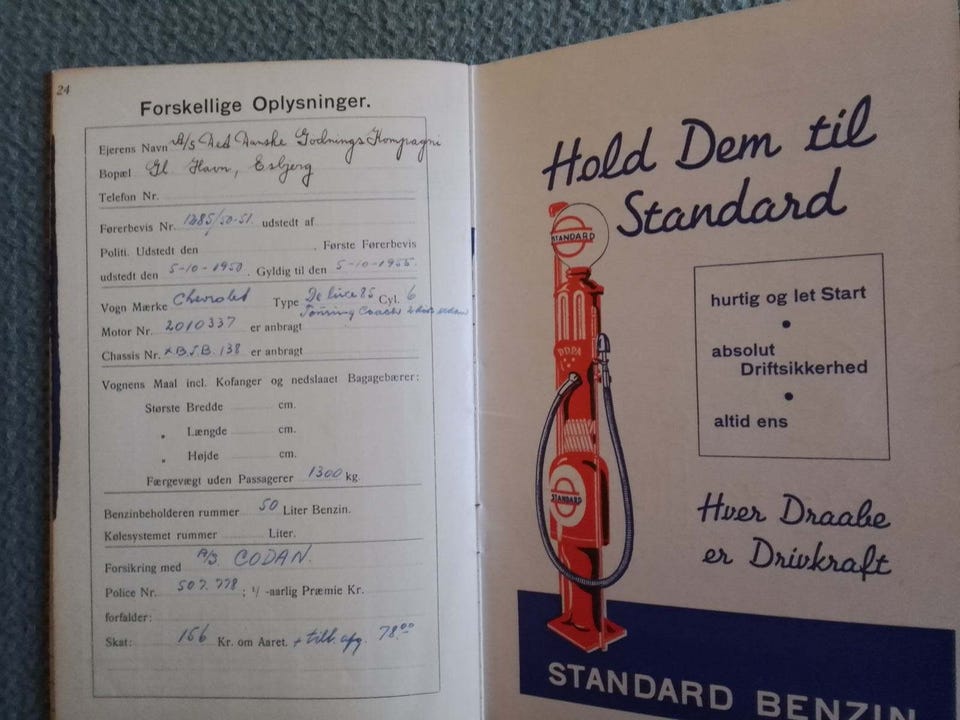 24
Forskellige Oplysninger.
Ejerens Navn A/S Det Danske Gødnings Kompagni
Bopæl Gl. Havn, Esbjerg
Telefon Nr.
Førerbevis Nr. 1285/50-51. udstedt af
Politi. Udstedt den . Første Førerbevis
udstedt den 5-10-1950. Gyldig til den 5-10-1955.
Vogn Mærke Chevrolet Type De luxe 85 Cyl. 6
Touring Coach 2 dørs sedan
Motor Nr. 2010337 er anbragt
Chassis Nr. *B.S.B. 138 er anbragt
Vognens Maal incl. Kofanger og nedslaaet Bagagebærer:
Største Bredde cm.
„ Længde cm.
„ Højde cm.
Færgevægt uden Passagerer 1300 kg.
Benzinbeholderen rummer 50 Liter Benzin.
Kølesystemet rummer Liter.
Forsikring med A/S CODAN.
Police Nr. 507.778; 1/ -aarlig Præmie Kr.
forfalder:
Skat: 156 Kr. om Aaret. + till. afg. 78.00
Hold Dem til
Standard
STANDARD
DDPA
STANDARD
hurtig og let Start
•
absolut
Driftsikkerhed
•
altid ens
Hver Draabe
er Drivkraft
STANDARD BENZIN